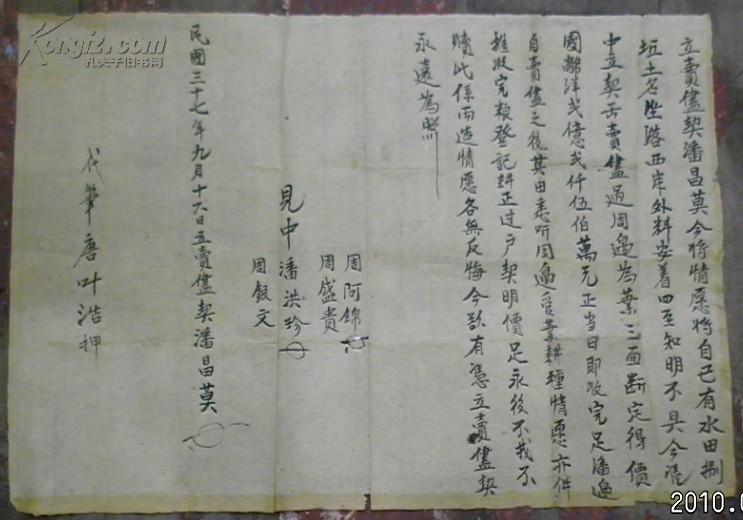 立賣儘契潘昌莫今將情愿將自己有水田捌
坵土名坐落西岸外料安着四至知明不具今凴
中立契出賣儘過周邊為業三面斷定得價
國幣洋弍億弍仟伍伯萬元正当日即收完足潘邊
自賣儘之後其田悉听周邊受業耕種情愿亦作
推收完粮登記耕正过户契明價足永後不找不
贖此係兩造情愿各無反悔今欲有凴立賣儘契
永遠為照
周阿錦
周盛貴
見中潘洪珍
周銀文
民國三十七年九月十六日立賣儘契潘昌莫
代筆唐叶浩押
Kongfz.com
孔夫子旧书网
2010.0